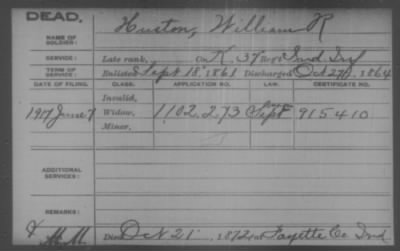 DEAD.
NAME OF SOLDIER: Huston, William R
SERVICE: Late rank, Co. K, 37 Reg't Ind Inf
TERM OF SERVICE: Enlisted Sept 18, 1861 Discharged Oct 27, 1864
DATE OF FILING. CLASS. APPLICATION NO. LAW. CERTIFICATE NO.
Invalid,
1917 June 7 Widow, 1102.273 Sept 915410
Minor,
ADDITIONAL SERVICES:
REMARKS:
Died Oct 21 1872 at Fayette Co Ind